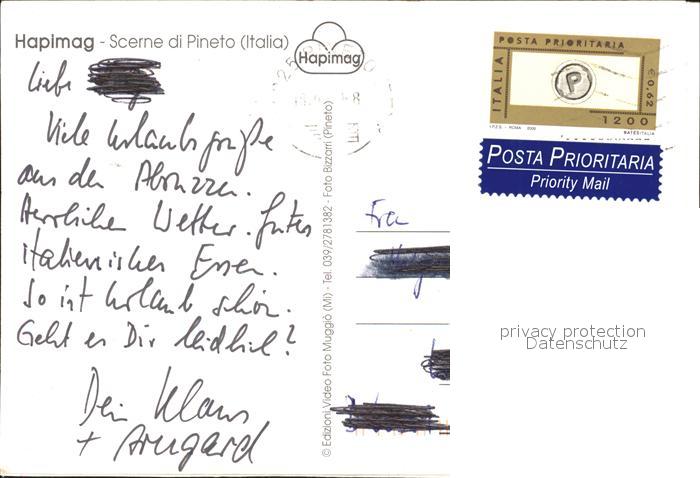 Hapimag - Scerne di Pineto (Italia)
Hapimag
Liebe
Viele Urlaubsgrüße
aus den Abruzzen.
Herrliches Wetter. Gutes
italienisches Essen.
So ist Urlaub schön.
Geht es Dir leidlich?
Dein Klaus
+ Irmgard
© Edizioni Video Foto Muggiò (MI) - Tel. 039/2781382 - Foto Bizzarri (Pineto)
Frau
POSTA PRIORITARIA
ITALIA
P
€0,62
1200
I.P.Z.S. - ROMA 2000
POSTA PRIORITARIA
Priority Mail
privacy protection
Datenschutz